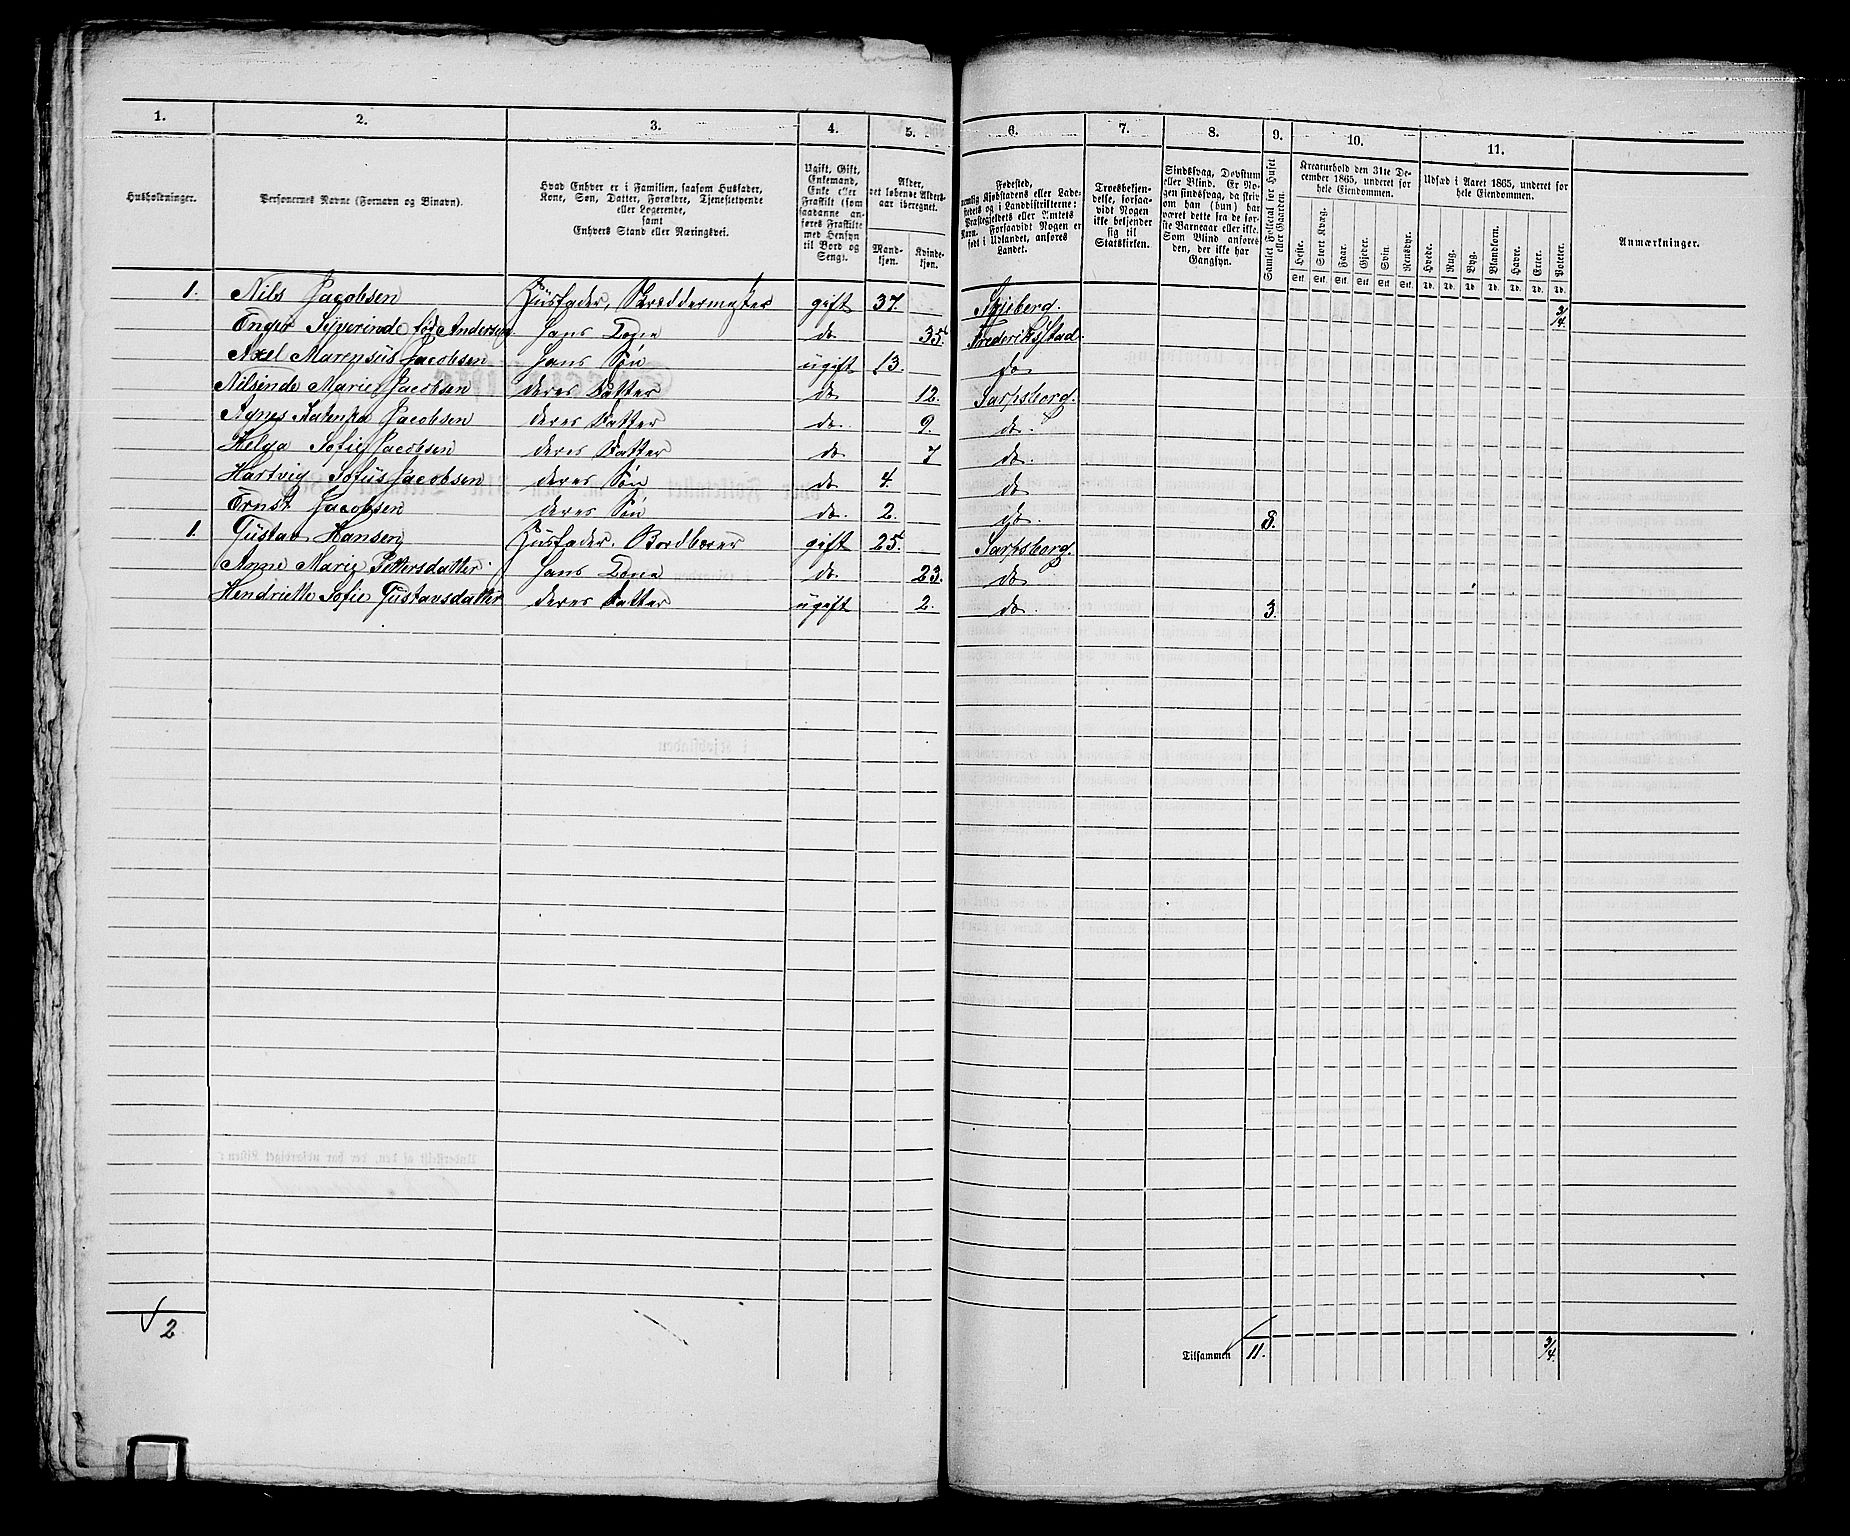 1. 2. 3. 4. 5. 6. 7. 8. 9. 10. 11.
Husholdninger.
Personernes Navne (Fornavn og Binavn).
Hvad Enhver er i Familien, saasom Husfader,
Kone, Søn, Datter, Forældre, Tjenestetyende
eller Logerende,
samt
Enhvers Stand eller Næringsvei.
Ugift, Gift,
Enkemand,
Enke eller
Fraskilt (som
saadanne an-
føres Fraskilte
med Hensyn
til Bord og
Seng).
Alder,
det løbende Alders-
aar iberegnet.
Mand-
kjøn.
Kvinde-
kjøn.
Fødested,
nemlig Kjøbstadens eller Lade-
stedets og i Landdistrikterne:
Præstegjeldets eller Amtets
Navn. Forsaavidt Nogen er
født i Udlandet, anføres
Landet.
Troesbekjen-
delse, forsaa-
vidt Nogen
ikke bekjender
sig til
Statskirken.
Sindssvag, Døvstum
eller Blind. Er No-
gen sindssvag, da skriv
om han (hun) har
været dette fra de før-
ste Barneaar eller ikke.
Som Blind anføres
den, der ikke har
Gangsyn.
Samlet Folketal for Huset
eller Gaarden.
Kreaturhold den 31te De-
cember 1865, underet for
hele Eiendommen.
Heste. Stort Kvæg. Faar. Gjeder. Svin. Rensdyr.
Stk. Stk. Stk. Stk. Stk. Stk.
Udsæd i Aaret 1865, underet for
hele Eiendommen.
Hvede. Rug. Byg. Blandkorn. Havre. Erter. Poteter.
Td. Td. Td. Td. Td. Td. Td.
Anmærkninger.
1. Nils Jacobsen Husfader, Skræddermester gift 37. Skjeberg 3/4.
Enger Syverinde fød Andersen hans Kone do 35. Frederiksstad.
Axel Marensius Jacobsen hans Søn ugift 13. do
Nilsinde Marie Jacobsen deres Datter do 12. Sarpsborg.
Agnes Jacobsen deres Datter do. 9. do.
Helga Sofie Jacobsen deres Datter do 7 do.
Hartvig Sofus Jacobsen deres Søn do 4. do
Ernst Jacobsen deres Søn do. 2. do. 8.
1. Gustav Hansen Husfader. Bordbærer gift 25. Sarpsborg.
Anne Marie Pettersdatter. hans Kone do 23. do
Hendriette Sofie Gustavsdatter deres Datter ugift 2. do. 3.
2
Tilsammen 11. 3/4.